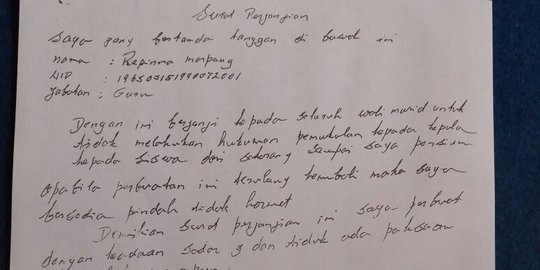 Surat Perjanjian
Saya yang bertanda tanggan di bawah ini
nama : Rapinma marpaung
NIP : 196509151990072001
Jabatan : Guru
Dengan ini berjanji kepada seluruh wali murid untuk
tidak melakukan hukuman pemukulan kepada kepala
kepada siswa dari sekarang sampai saya pensiun
apabila perbuatan ini terulang kembali maka saya
bersedia pindah tidak hormat
Demikian surat perjanjian ini saya perbuat
dengan keadaan sadar y dan tidak ada paksaan